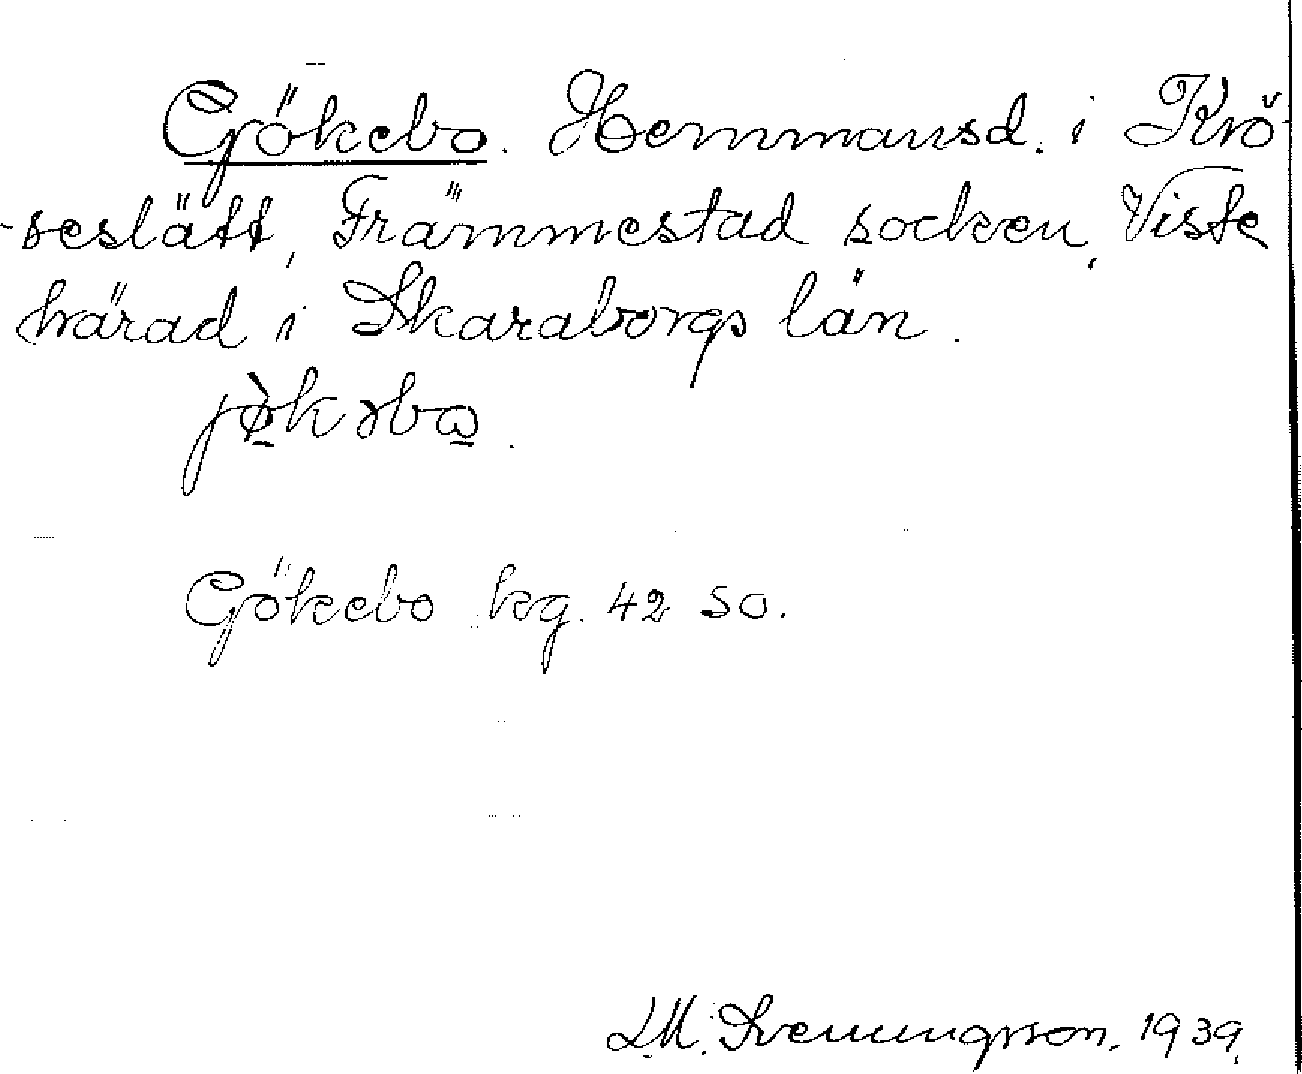 Gökebo. Hemmansd. i Krö-
-seslätt, Främmestad socken, Viste
härad i Skaraborgs län.
jø̀kəbω.
Gökebo kg. 42 SO.
L.M. Svenungsson, 1939.